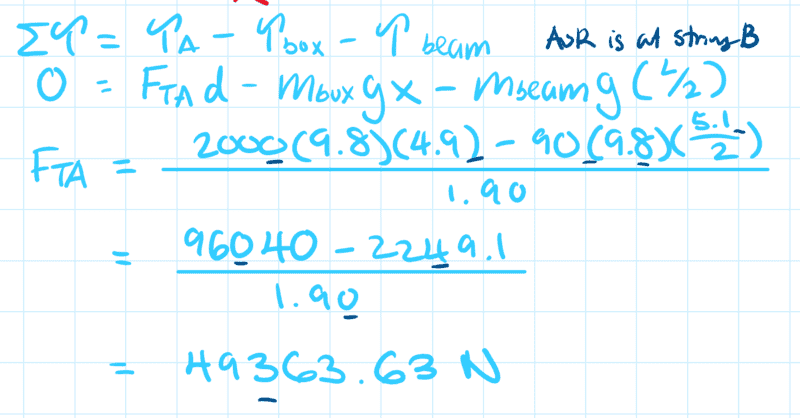 Στ = τ_A - τ_box - τ_beam AoR is at string B
0 = F_TA d - m_box g x - m_beam g (L/2)
F_TA = 2000(9.8)(4.9) - 90(9.8)(5.1/2)
1.90
= 96040 - 2249.1
1.90
= 49363.63 N